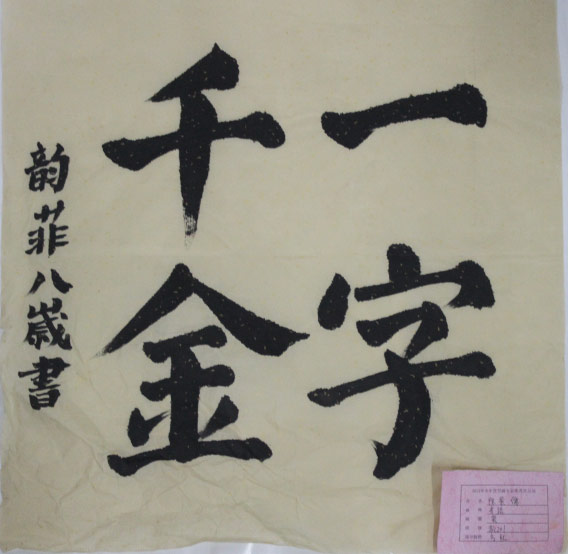 一字
千金
韵菲八歲書